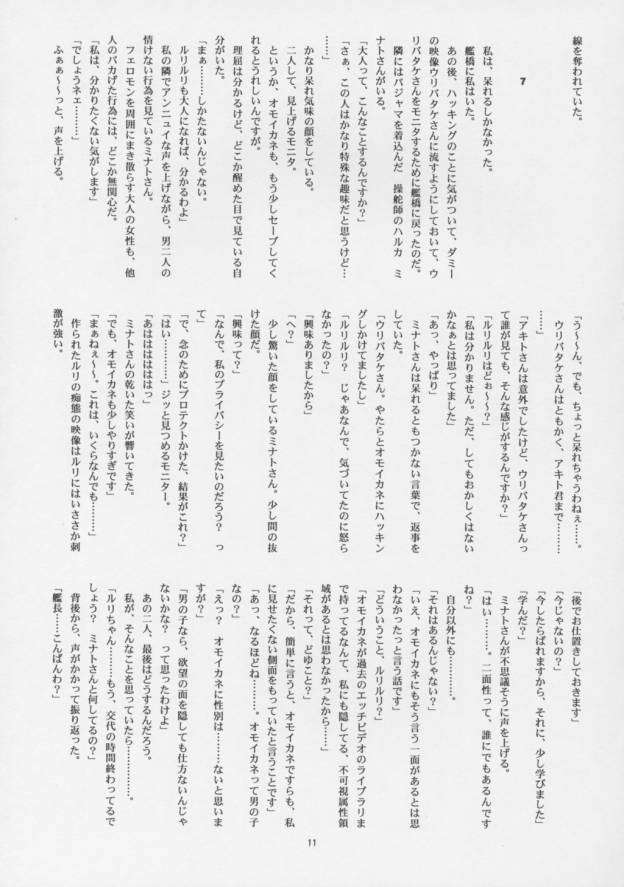 線を奪われていた。
7
私は、呆れるしかなかった。
艦橋に私はいた。
あの後、ハッキングのことに気がついて、ダミー
の映像ウリバタケさんに流すようにしておいて、ウ
リバタケさんをモニタするために艦橋に戻ったのだ。
隣にはパジャマを着込んだ　操舵師のハルカ　ミ
ナトさんがいる。
「大人って、こんなことするんですか？」
「さぁ、この人はかなり特殊な趣味だと思うけど…
かなり呆れ気味の顔をしている。
二人して、見上げるモニタ。
というか、オモイカネも、もう少しセーブしてく
れるとうれしいんですが。
理屈は分かるけど、どこか醒めた目で見ている自
分がいた。
「まぁ……しかたないんじゃない。
ルリルリも大人になれば、分かるわよ」
私の隣でアンニュイな声を上げながら、男二人の
情けない行為を見ているミナトさん。
フェロモンを周囲にまき散らす大人の女性も、他
人のバカげた行為には、どこか無関心だ。
「私は、分かりたくない気がします」
「でしょうネェ………」
ふぁぁ〜〜っと、声を上げる。
「う〜〜ん、でも、ちょっと呆れちゃうわねぇ……。
ウリバタケさんはともかく、アキト君まで………
………」
「アキトさんは意外でしたけど、ウリバタケさんっ
て誰が見ても、そんな感じがするんですか？」
「ルリルリはどぉ〜〜？」
「私は分かりません。ただ、してもおかしくはない
かなぁとは思ってました」
「あっ、やっぱり」
ミナトさんは呆れるともつかない言葉で、返事を
していた。
「ウリバタケさん。やたらとオモイカネにハッキン
グしかけてましたし」
「ルリルリ？　じゃあなんで、気づいてたのに怒ら
なかったの？」
「興味ありましたから」
「へ？」
少し驚いた顔をしているミナトさん。少し間の抜
けた顔だ。
「興味って？」
「なんで、私のプライバシーを見たいのだろう？　っ
て」
「で、念のためにプロテクトかけた、結果がこれ？」
「はい…………」ジッと見つめるモニター。
「あはははははっ」
ミナトさんの乾いた笑いが響いてきた。
「でも、オモイカネも少しやりすぎです」
「まぁねぇ〜〜。これは、いくらなんでも………」
作られたルリの痴態の映像はルリにはいささか刺
激が強い。
「後でお仕置きしておきます」
「今じゃないの？」
「今したらばれますから、それに、少し学びました」
「学んだ？」
ミナトさんが不思議そうに声を上げる。
「はい………。二面性って、誰にでもあるんです
ね？」
自分以外にも………。
「それはあるんじゃない？」
「いえ、オモイカネにもそう言う一面があるとは思
わなかったっと言う話です」
「どういうこと、ルリルリ？」
「オモイカネが過去のエッチビデオのライブラリま
で持ってるなんて、私にも隠してる、不可視属性領
域があるとは思わなかったから……」
「それって、どゆこと？」
「だから、簡単に言うと、オモイカネですらも、私
に見せたくない側面をもっていたと言うことです」
「あっ、なるほどね………。オモイカネって男の子
なの？」
「えっ？　オモイカネに性別は………ないと思いま
すが？」
「男の子なら、欲望の面を隠しても仕方ないんじゃ
ないかな？　って思ったわけよ」
あの二人、最後はどうするんだろう。
私が、そんなことを思っていたら…………。
「ルリちゃん………もう、交代の時間終わってるで
しょう？　ミナトさんと何してるの？」
背後から、声がかかって振り返った。
「艦長……こんばんわ？」
11